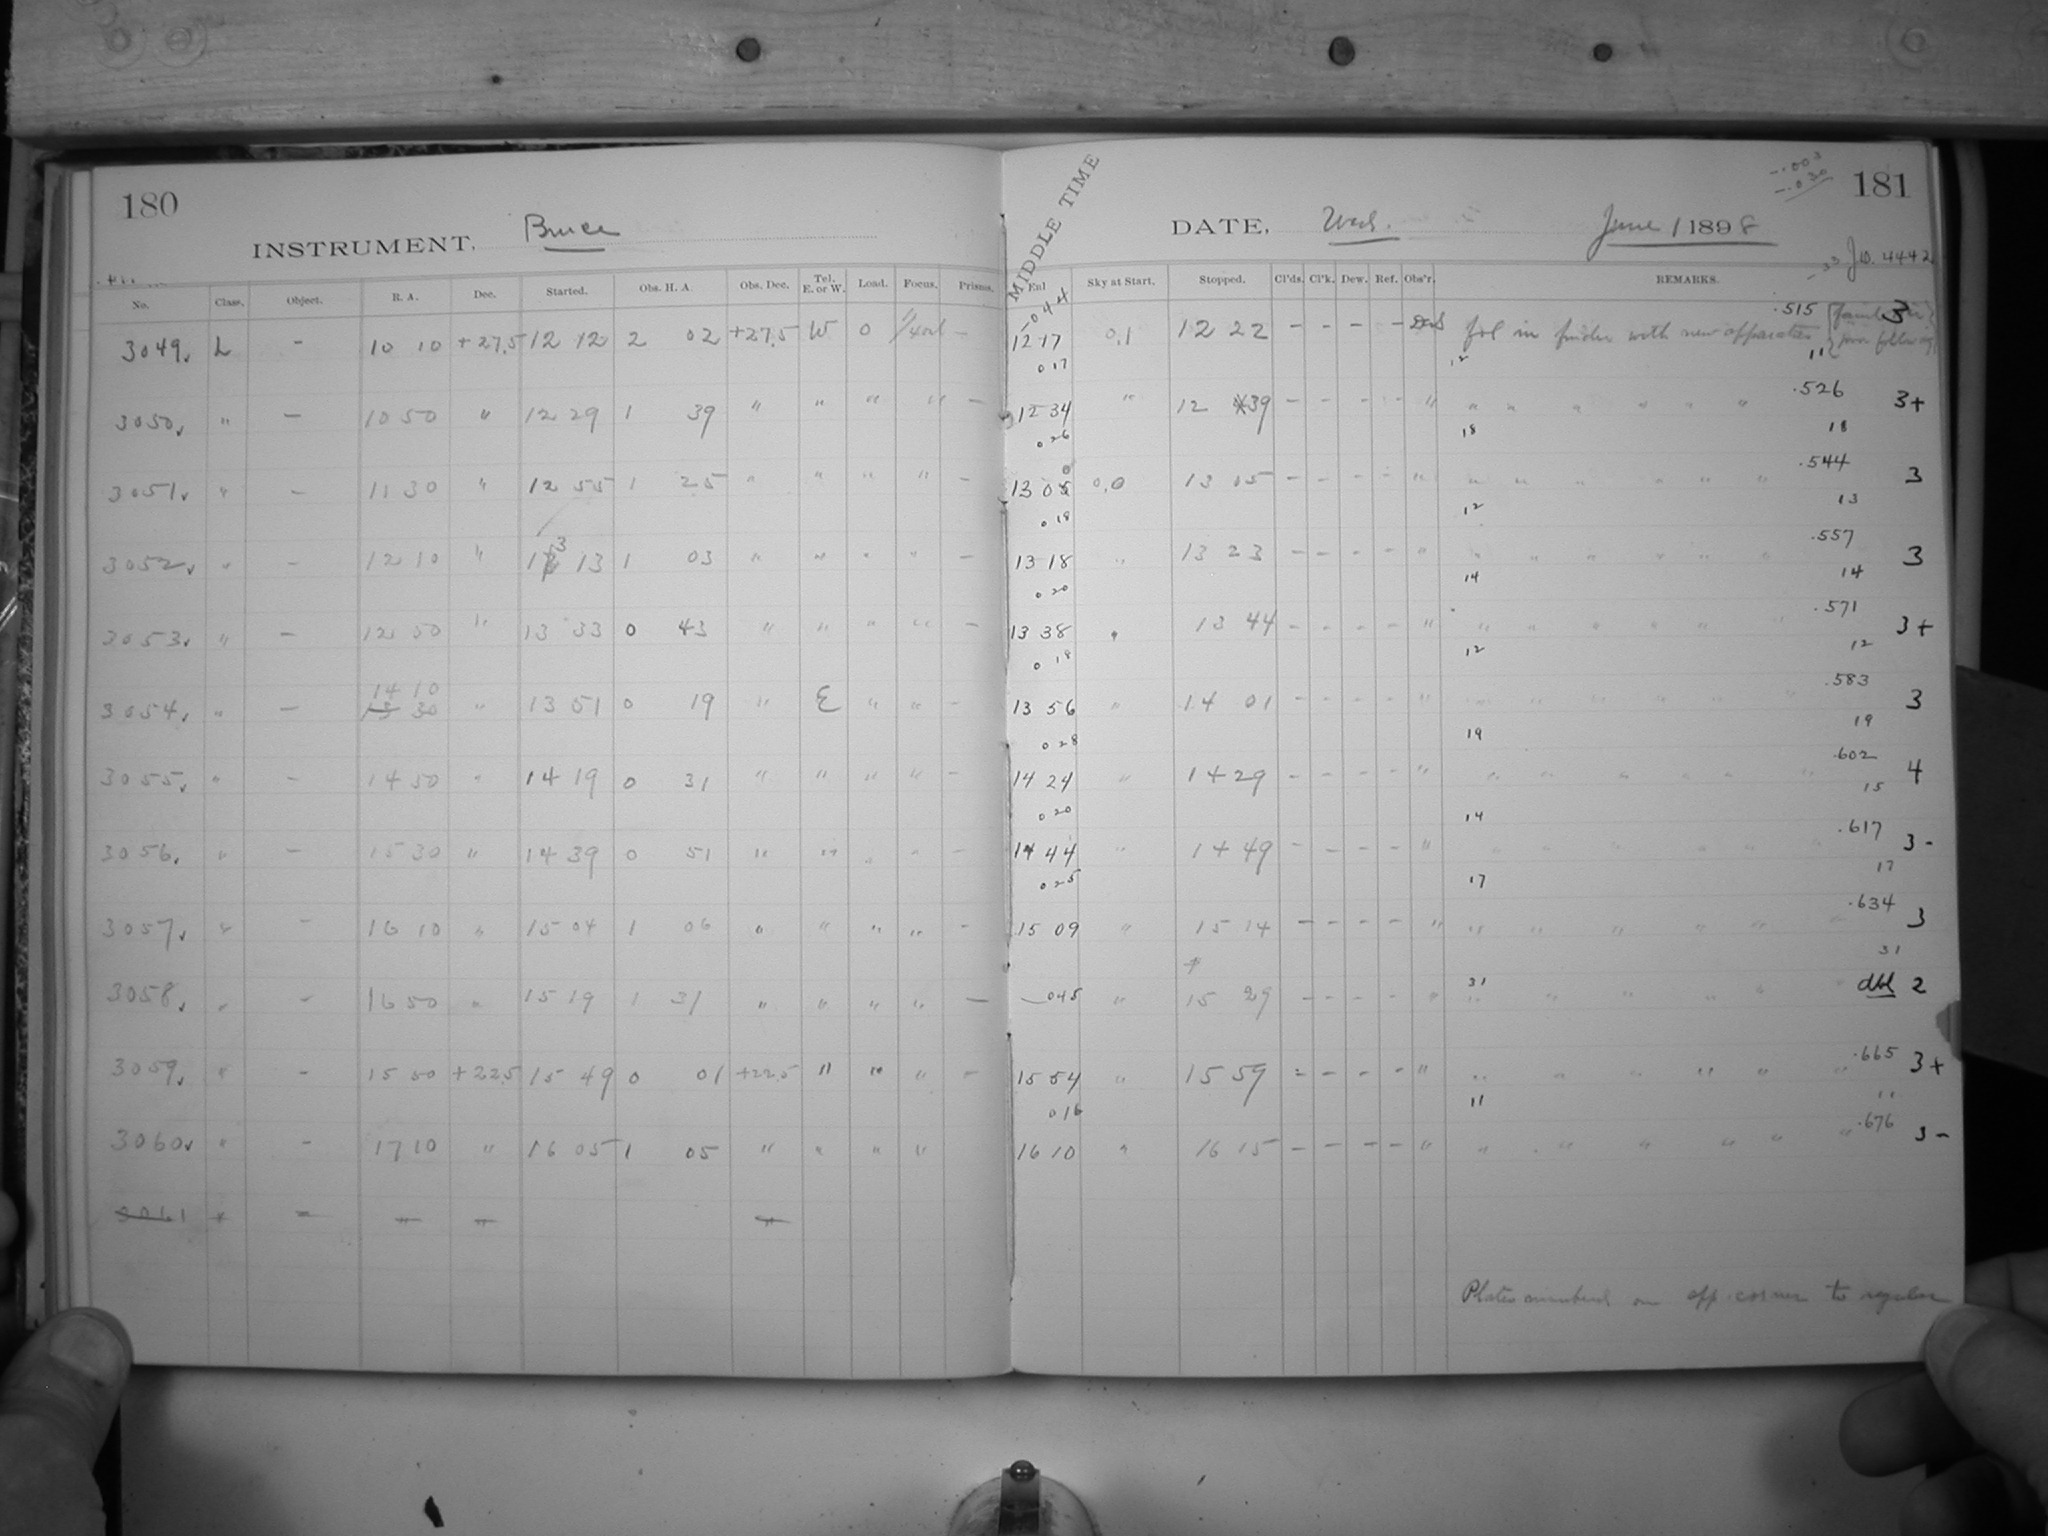 180
INSTRUMENT, Bruce
No. Class. Object. R. A. Dec. Started. Obs. H. A. Obs. Dec. Tel. E. or W. Load. Focus. Prisms.
3049 L - 10 10 +27.5 12 12 2 02 +27.5 W 0 -
3050 " - 10 50 " 12 29 1 39 " " " " -
3051 " - 11 30 " 12 55 1 25 " " " " -
3052 " - 12 10 " 13 13 1 03 " " " " -
3053 " - 12 50 " 13 33 0 43 " " " " -
14 10
3054 " - 13 30 " 13 51 0 19 " E " " -
3055 " - 14 50 " 14 19 0 31 " " " " -
3056 " - 15 30 " 14 39 0 51 " " " " -
3057 " - 16 10 " 15 04 1 06 " " " " -
3058 " - 16 50 " 15 19 1 31 " " " " -
3059 " - 15 50 +22.5 15 49 0 01 +22.5 " " " -
3060 " - 17 10 " 16 05 1 05 " " " "
3061
181
-.003
-.030
-33
MIDDLE TIME
DATE, Wed. June 1 1898
J.D. 4442
Exl Sky at Start. Stopped. Cl'ds. Cl'k. Dew. Ref. Obs'r. REMARKS.
-044
.515
12 17 0,1 12 22 - - - - fol in finder with new apparatus 3
017 12 11
.526
12 34 " 12 39 - - - - " " " " " " " 3+
026 18 18
.544
13 05 0,0 13 15 - - - - " " " " " " " 3
018 12 13
.557
13 18 " 13 23 - - - - " " " " " " " 3
020 14 14
.571
13 38 " 13 44 - - - - " " " " " " 3+
018 12 12
.583
13 56 " 14 01 - - - - " 3
028 19 19
.602
14 24 " 14 29 - - - - " " " " " " " 4
020 14 15
.617
14 44 " 14 49 - - - - " " " " " " 3-
025 17 17
.634
15 09 " 15 14 - - - - " " " " " " 3
31 31
-045 " 15 29 - - - - " " " " " " dbl 2
.665
15 54 " 15 59 - - - - " " " " " " " 3+
016 11 11
.676
16 10 " 16 15 - - - - " " " " " " " 3-
Plates numbered on opp. corner to regular